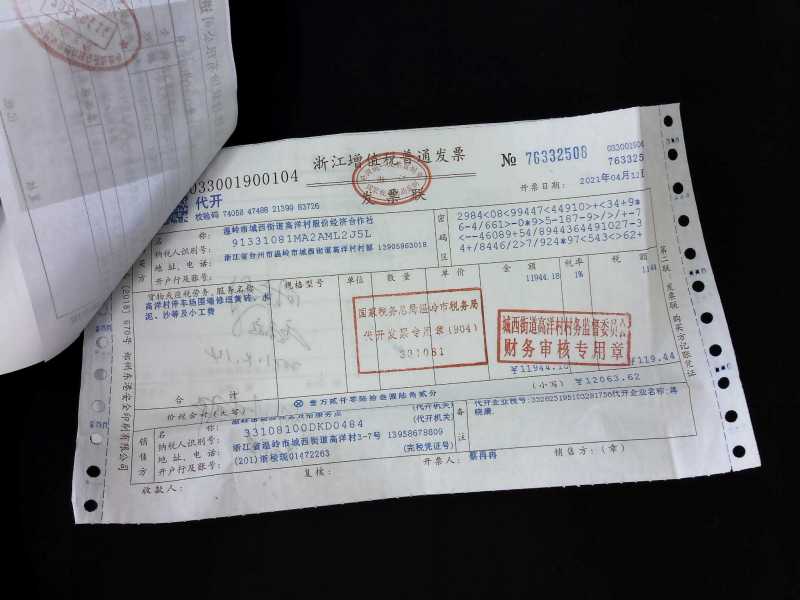 浙江增值税普通发票
发票联
033001900104
代开
校验码 74058 47488 21399 83726
№ 76332508
033001904
763325
开票日期： 2021年04月12日
名 称： 温岭市城西街道高洋村股份经济合作社
纳税人识别号： 91331081MA2AML2J5L
地 址、电 话： 浙江省台州市温岭市城西街道高洋村村部 13905863018
开户行及账号：
密码区
2984<08<99447<44910>+<34+9*
6-4/661>-0*9>5-187-9>/>/+-7
<--46089+54/8944364491027-3
4+/8446/2>7/924*97<543<>62+
货物或应税劳务、服务名称
规格型号
单位
数 量
单 价
金 额
税率
税 额
高洋村停车场围墙修理黄砖、水
泥、沙等及小工费
11944.18
1%
国家税务总局温岭市税务局
代开发票专用章(904)
331081
城西街道高洋村村务监督委员会
财务审核专用章
合 计
￥11944.18
￥119.44
价税合计(大写)
⊗ 壹万贰仟零陆拾叁圆陆角贰分
(小写) ￥12063.62
销售方
(代开机关)
纳税人识别号： 33108100DKD0484
(代开机关)
地 址、电 话： 浙江省温岭市城西街道高洋村3-7号 13958679809
开户行及账号： (201)浙税现01472263
(完税凭证号)
备注
收款人：
复核：
开票人： 蔡冉冉
销售方：(章)
第二联：发票联 购买方记账凭证